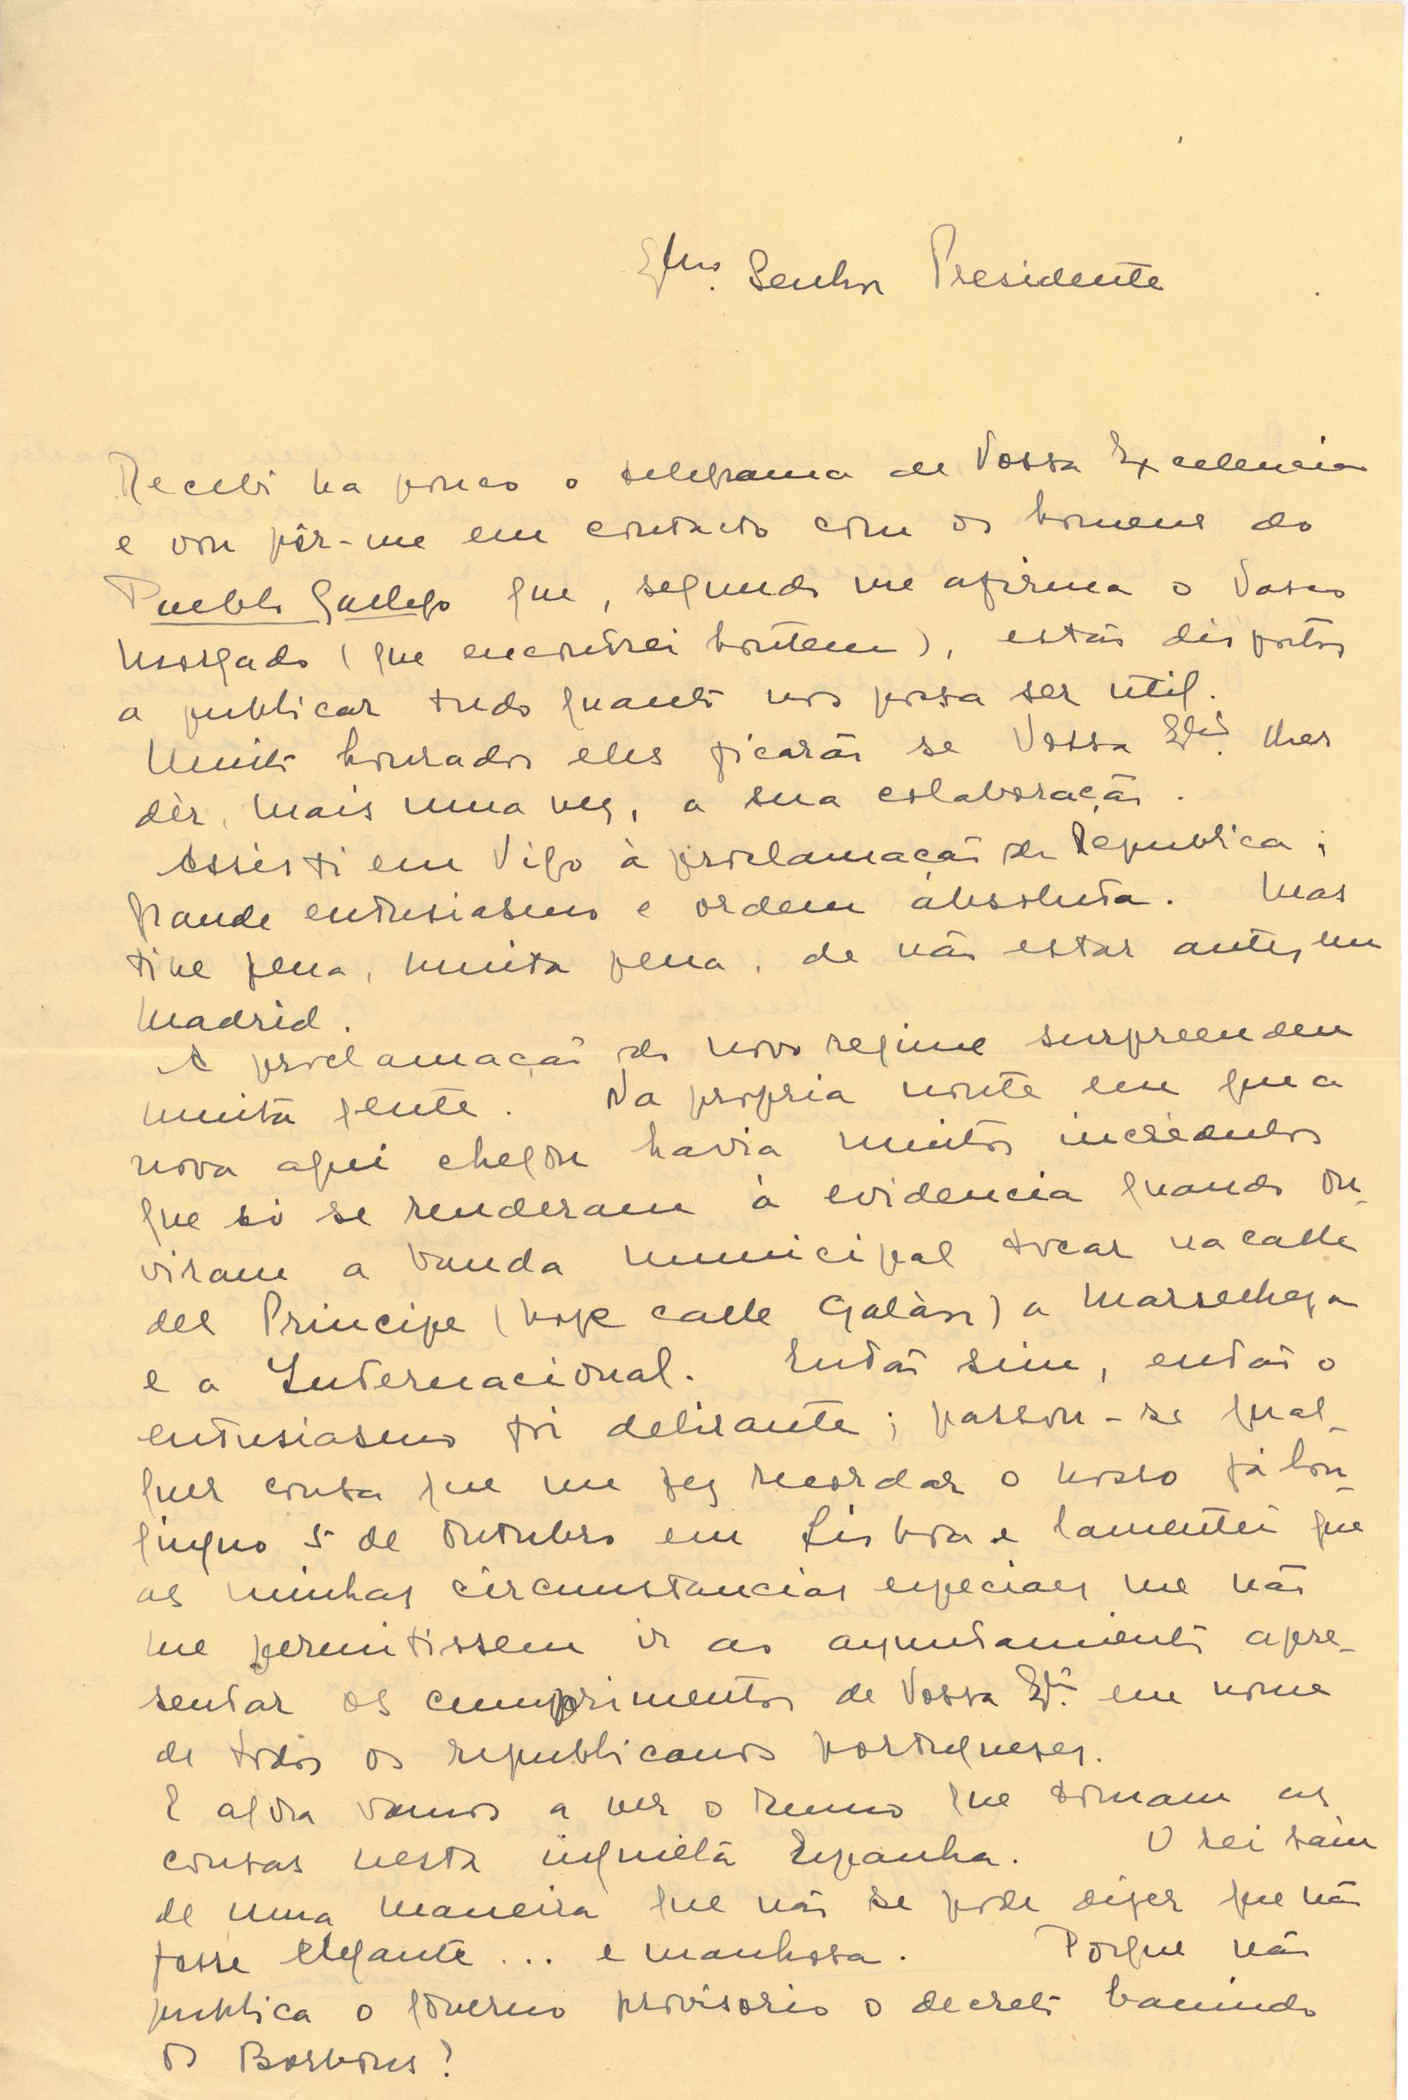 Exmo. Senhor Presidente
Recebi ha pouco o telegrama de Vossa Excelencia
e vou pôr-me em contacto com os homens do
Pueblo Gallego que, segundo me afirma o Vasco
Morgado (que encontrei hontem), estão dispostos
a publicar tudo quanto nos possa ser util.
Muito honrados eles ficarão se Vossa Exª. lhes
dér, mais uma vez, a sua colaboração.
Assisti em Vigo à proclamação da Republica;
grande entusiasmo e ordem absoluta. Mas
tive pena, muita pena, de não estar antes em
Madrid.
A proclamação do novo regime surpreendeu
muita gente. Na propria noute em que a
nova aqui chegou havia muitos incrédulos
que só se renderam à evidencia quando ou-
viram a banda municipal tocar na calle
del Principe (hoje calle Galàn) a Marselheza
e a Internacional. Então sim, então o
entusiasmo foi delirante; passou-se qual-
quer cousa que me fez recordar o nosso já lon-
ginquo 5 de Outubro em Lisboa e lamentei que
as minhas circumstancias especiaes me não
me permitissem ir ao ayuntamiento apre-
sentar os cumprimentos de Vossa Exª. em nome
de todos os republicanos portugueses.
E agora vamos a ver o rumo que tomam as
cousas nesta inquieta Espanha. O rei saiu
de uma maneira que não se pode dizer que não
fosse elegante... e manhosa. Porque não
publica o governo provisorio o decreto banindo
os Borbons?